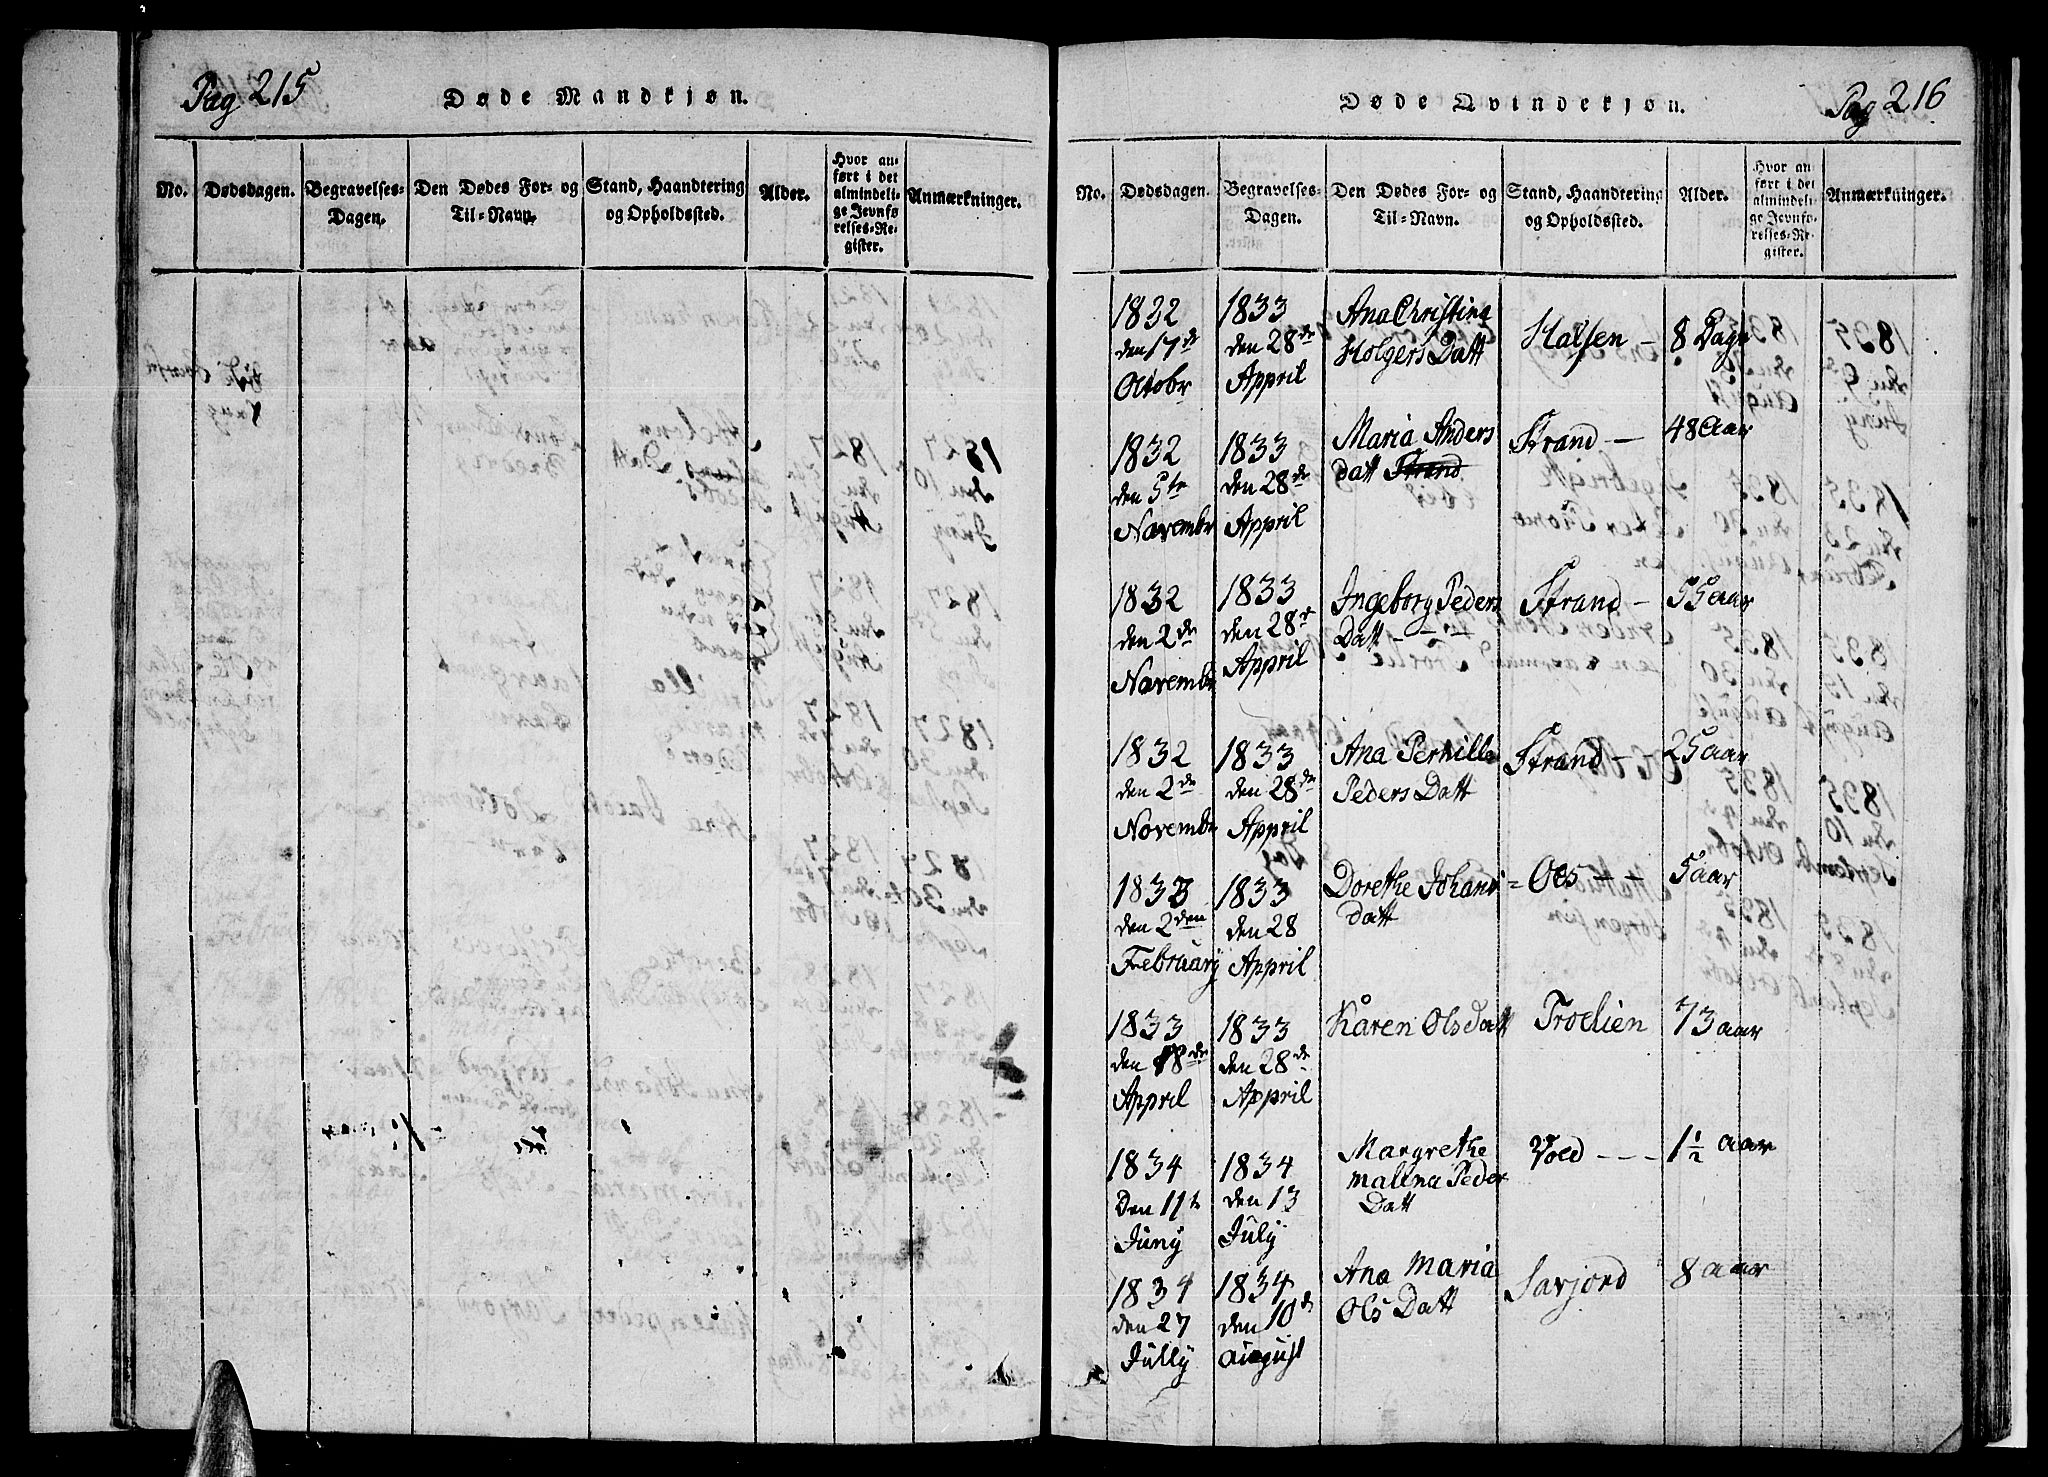 Pag 215
Døde Mandkjøn.
No.
Dødsdagen.
Begravelses-
Dagen.
Den Dødes For- og
Til-Navn.
Stand, Haandtering
og Opholdssted.
Alder.
Hvor an-
ført i det
almindeli-
ge Jevnfø
relses-Re-
gister.
Anmærkninger.
Døde Qvindekjøn.
Pag 216
No.
Dødsdagen.
Begravelses-
Dagen.
Den Dødes For- og
Til-Navn.
Stand, Haandtering
og Opholdssted.
Alder.
Hvor an-
ført i det
almindeli-
ge Jevnfø-
relses-Re-
gister.
Anmærkninger.
1832
den 17de
Octobr
1833
den 28de
Appril
Ana Christina
Holgers Datt
Halsen -
8 Dage
1832
den 5te
Novembr
1833
den 28de
Appril
Maria Anders
Datt Strand
Strand -
48 aar
1832
den 2de
Novembr
1833
den 28de
Appril
Ingeborg Peders
Datt - - -
Strand -
55 aar
1832
den 2de
Novembr
1833
den 28de
Appril
Ana Pernille
Peders Datt
Strand -
25 aar
1833
den 2den
February
1833
den 28
Appril
Dorethe Johans =
Datt
Oes - -
5 aar
1833
den 18de
Appril
1833
den 28de
Appril
Karen Olsdatt
Troelien
73 aar
1834
Den 11te
Juny
1834
den 13
July
Margrethe
Malena Peder
Datt
Voed - - -
1 1/2 aar
1834
den 27
Jully
1834
den 10de
august
Ana Maria
Ols Datt
Sarjord
8 aar